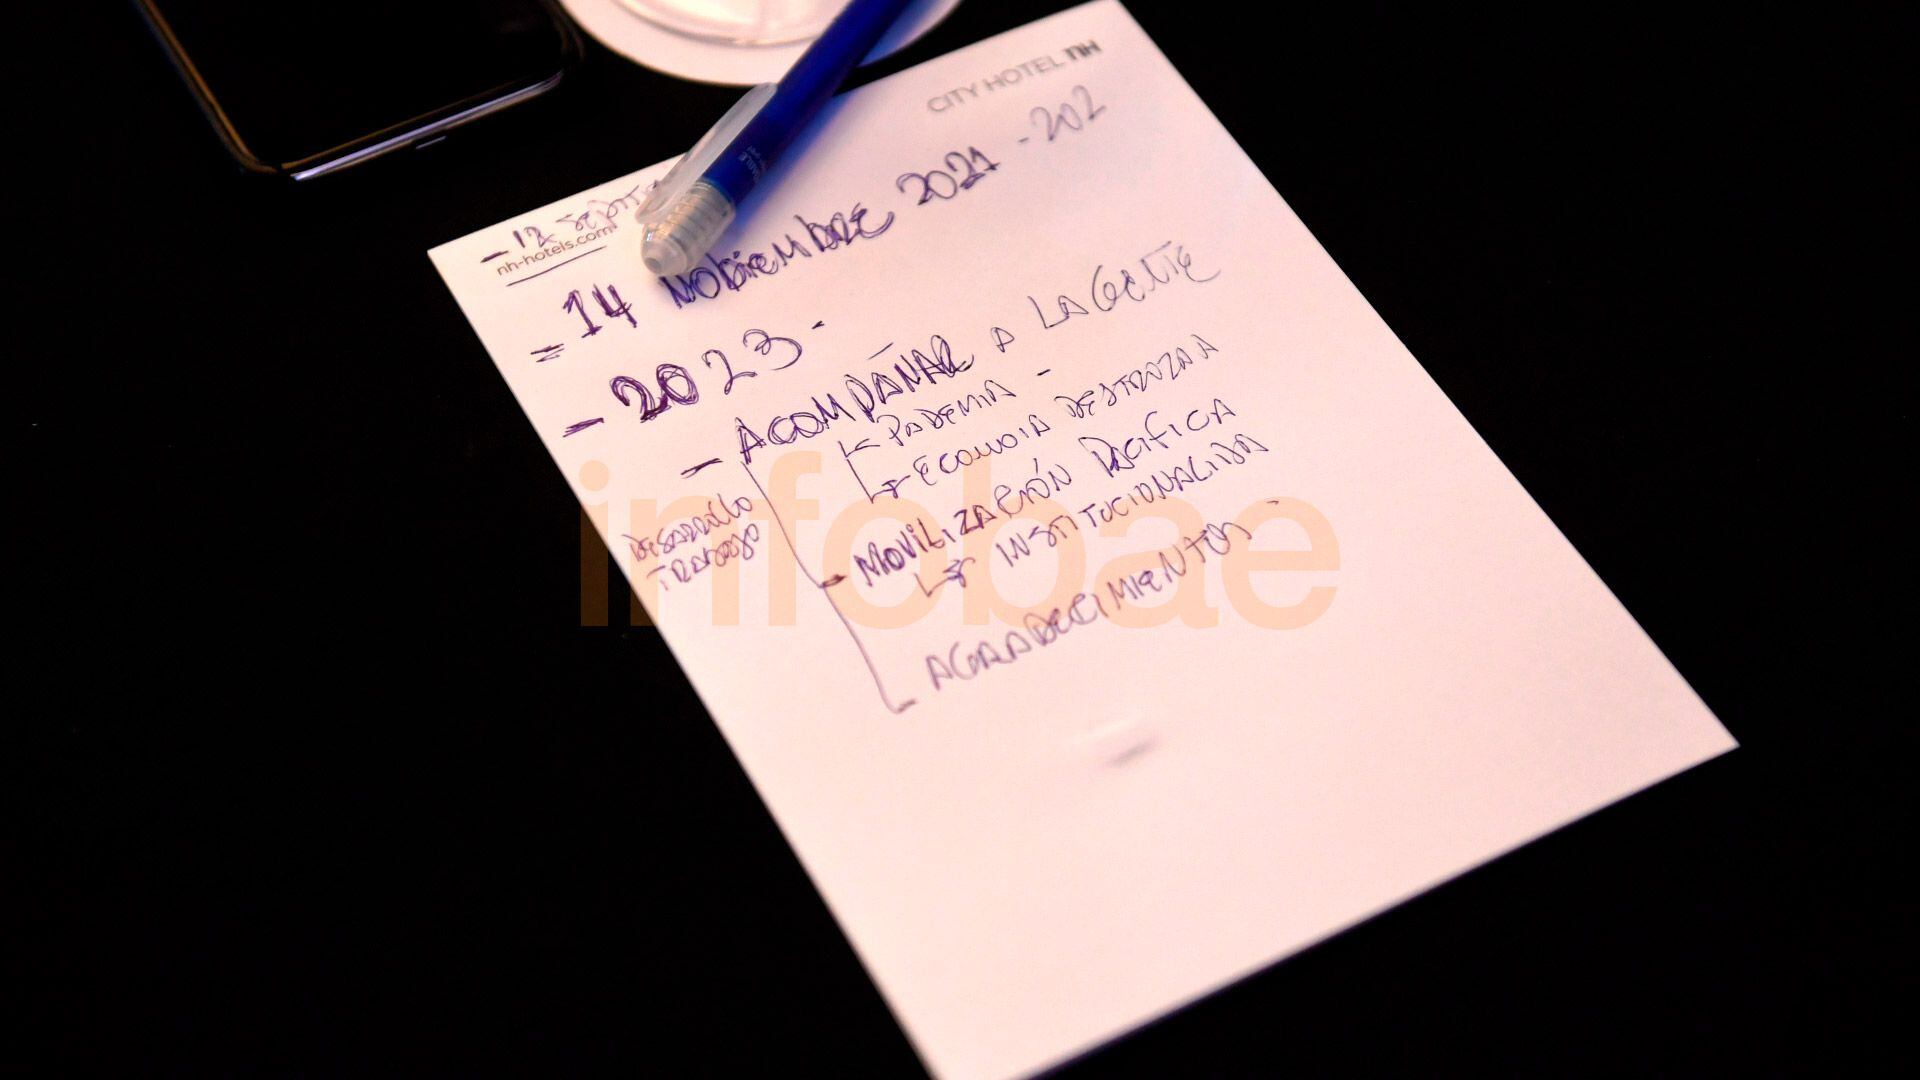 CITY HOTEL nH
- 12 SEPTIE
nh-hotels.com
= 14 NOBIEMBRE 2021 - 202
- 2023 -
- ACOMPAÑAR A LA GENTE
PADEMIA -
ECONOIA DESTROZAA
DESARROLLO
TRABAJO
- MOVILIZACIÓN PACIFICA
INSTITUCIONALIDA
AGRADECIMIENTOS -
infobae